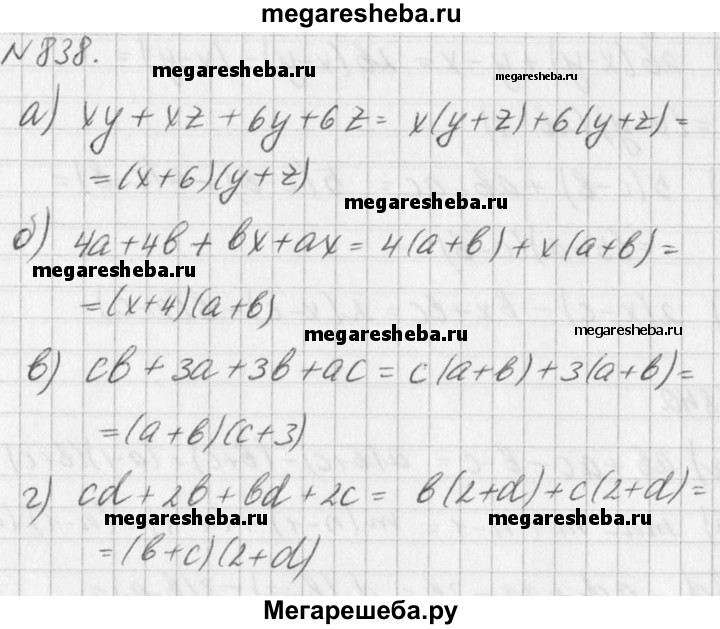 megaresheba.ru
№838.
megaresheba.ru megaresheba.ru
а) xy + xz + 6y + 6z = x(y+z) + 6(y+z) =
= (x+6)(y+z)
megaresheba.ru
б) 4a + 4b + bx + ax = 4(a+b) + x(a+b) =
megaresheba.ru
= (x+4)(a+b)
megaresheba.ru megaresheba.ru
в) cb + 3a + 3b + ac = c(a+b) + 3(a+b) =
= (a+b)(c+3)
г) cd + 2b + bd + 2c = b(2+d) + c(2+d) =
megaresheba.ru megaresheba.ru
= (b+c)(2+d)
Мегарешеба.ру